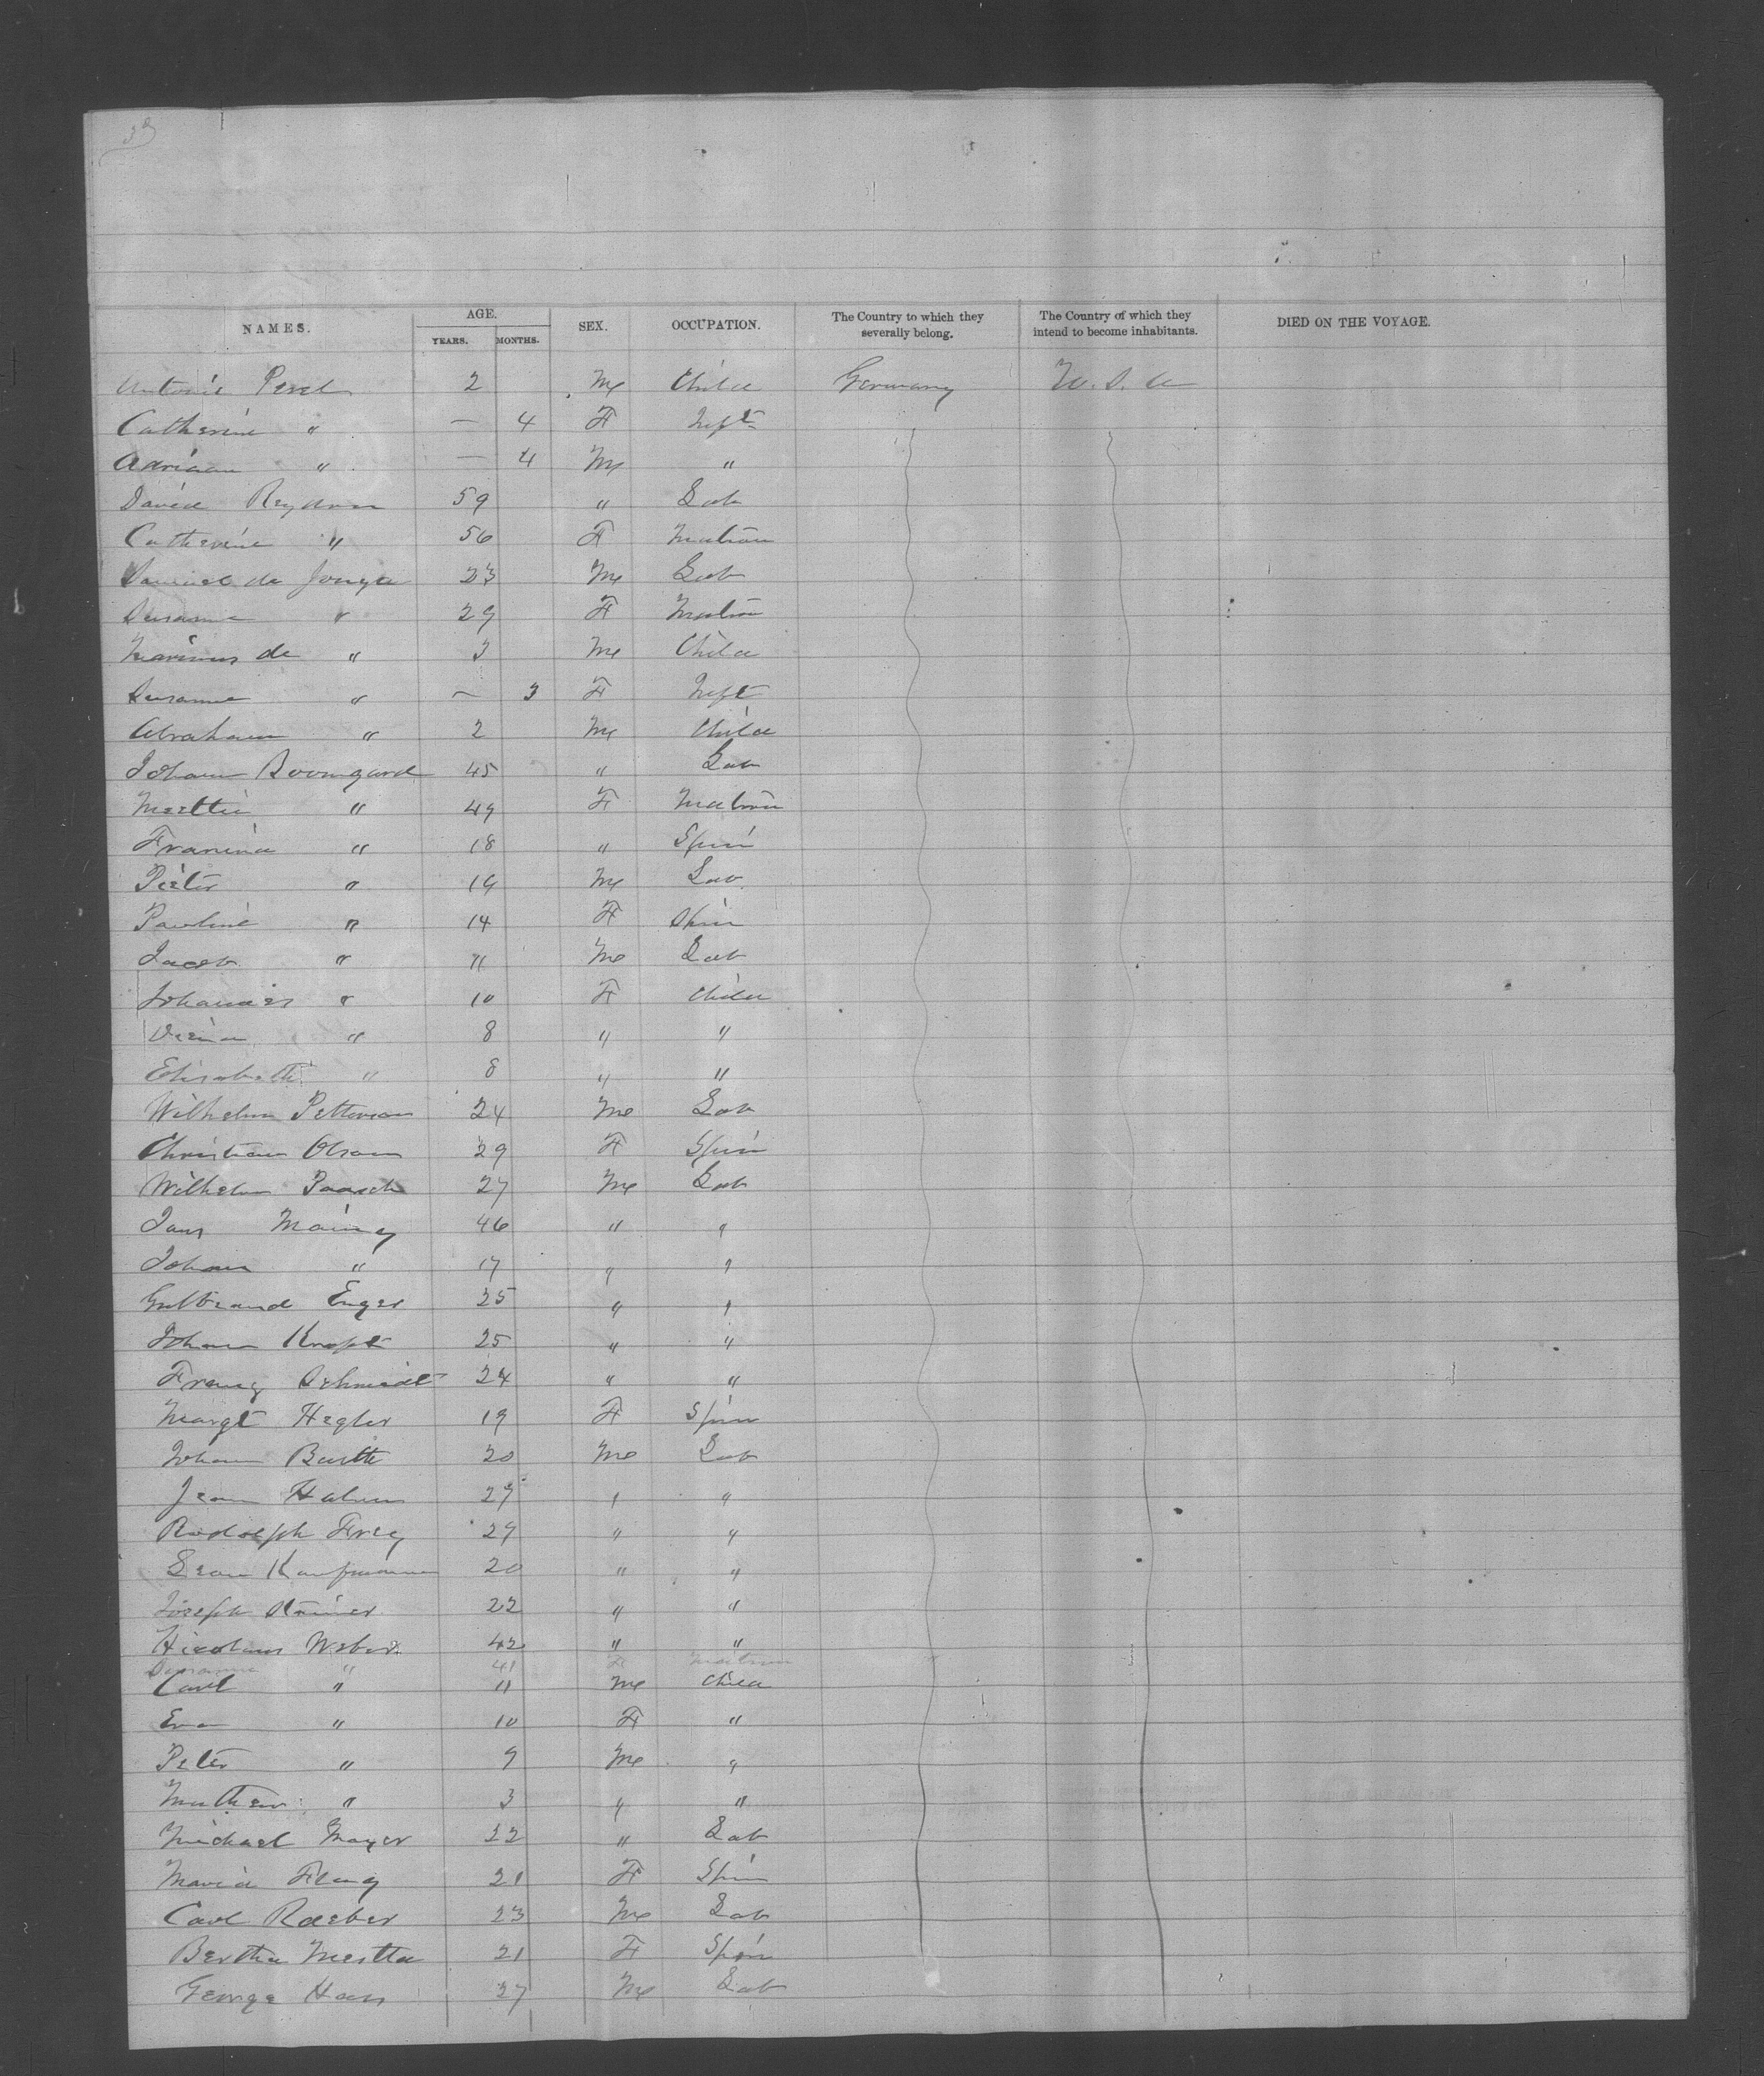 39
NAMES. AGE. SEX. OCCUPATION. The Country to which they severally belong. The Country of which they intend to become inhabitants. DIED ON THE VOYAGE.
YEARS. MONTHS.
Antonie 2 M Child Germany U. S. A
Catherine " — 4 F Inft
Adriaan " — 4 M "
David 59 " Lab
Catherine " 56 F Matron
Samuel de Jonge 23 M Lab
Susanna " 29 F Matron
Marinus de " 3 M Child
Susanna " — 3 F Inft
Abraham " 2 M Child
Johann Boomgard 45 " Lab
" 49 F Matron
Franina " 18 " Spin
Pieter " 19 M Lab
Pauline " 14 F Spin
Jacob " 11 M Lab
" 10 F Child
" 8 " "
Elisabeth " 8 " "
Wilhelm Petterson 24 M Lab
Christian Olsen 29 F Spin
Wilhelm Paasch 27 M Lab
46 " "
Johann " 17 " "
Gulbrand Enger 25 " "
Johann Kropt 25 " "
Franz Schmidt 24 " "
Margt Hegler 19 F Spin
Johann Barth 20 M Lab
Jean 27 " "
Rudolph Frey 27 " "
Leon Kaufmann 20 " "
Joseph 22 " "
Nicolaus Weber 42 " "
Susanna " 41 F Matron
Carl " 11 M Child
Eva " 10 F "
Peter " 9 M "
Mathew " 3 " "
Michael Mayer 22 " Lab
Maria 21 F Spin
Carl Raeber 23 M Lab
Bertha 21 F Spin
George Haas 27 M Lab